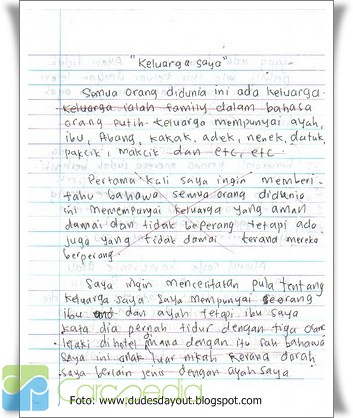 "Keluarga saya"
Semua orang didunia ini ada keluarga.
Keluarga ialah family dalam bahasa
orang putih. Keluarga mempunyai ayah,
ibu, Abang, kakak, adek, nenek, datuk,
pakcik, Makcik dan etc, etc
Pertama kali saya ingin memberi-
tahu bahawa semua orang didunia
ini memempunyai keluarga yang aman
damai dan tidak beperang tetapi ada
juga yang tidak damai kerana mereka
berperang.
Saya ingin menceritakan pula tentang
keluarga saya saya mempunyai seorang
ibu dan ayah tetapi ibu saya
kata dia pernah tidur dengan tiga orang
lelaki dihotel mana dengan itu sah bahawa
saya ini anak luar nikah kerana darah
saya berlain jenis dengan ayah saya
Carcpedia
Foto: www.dudesdayout.blogspot.com